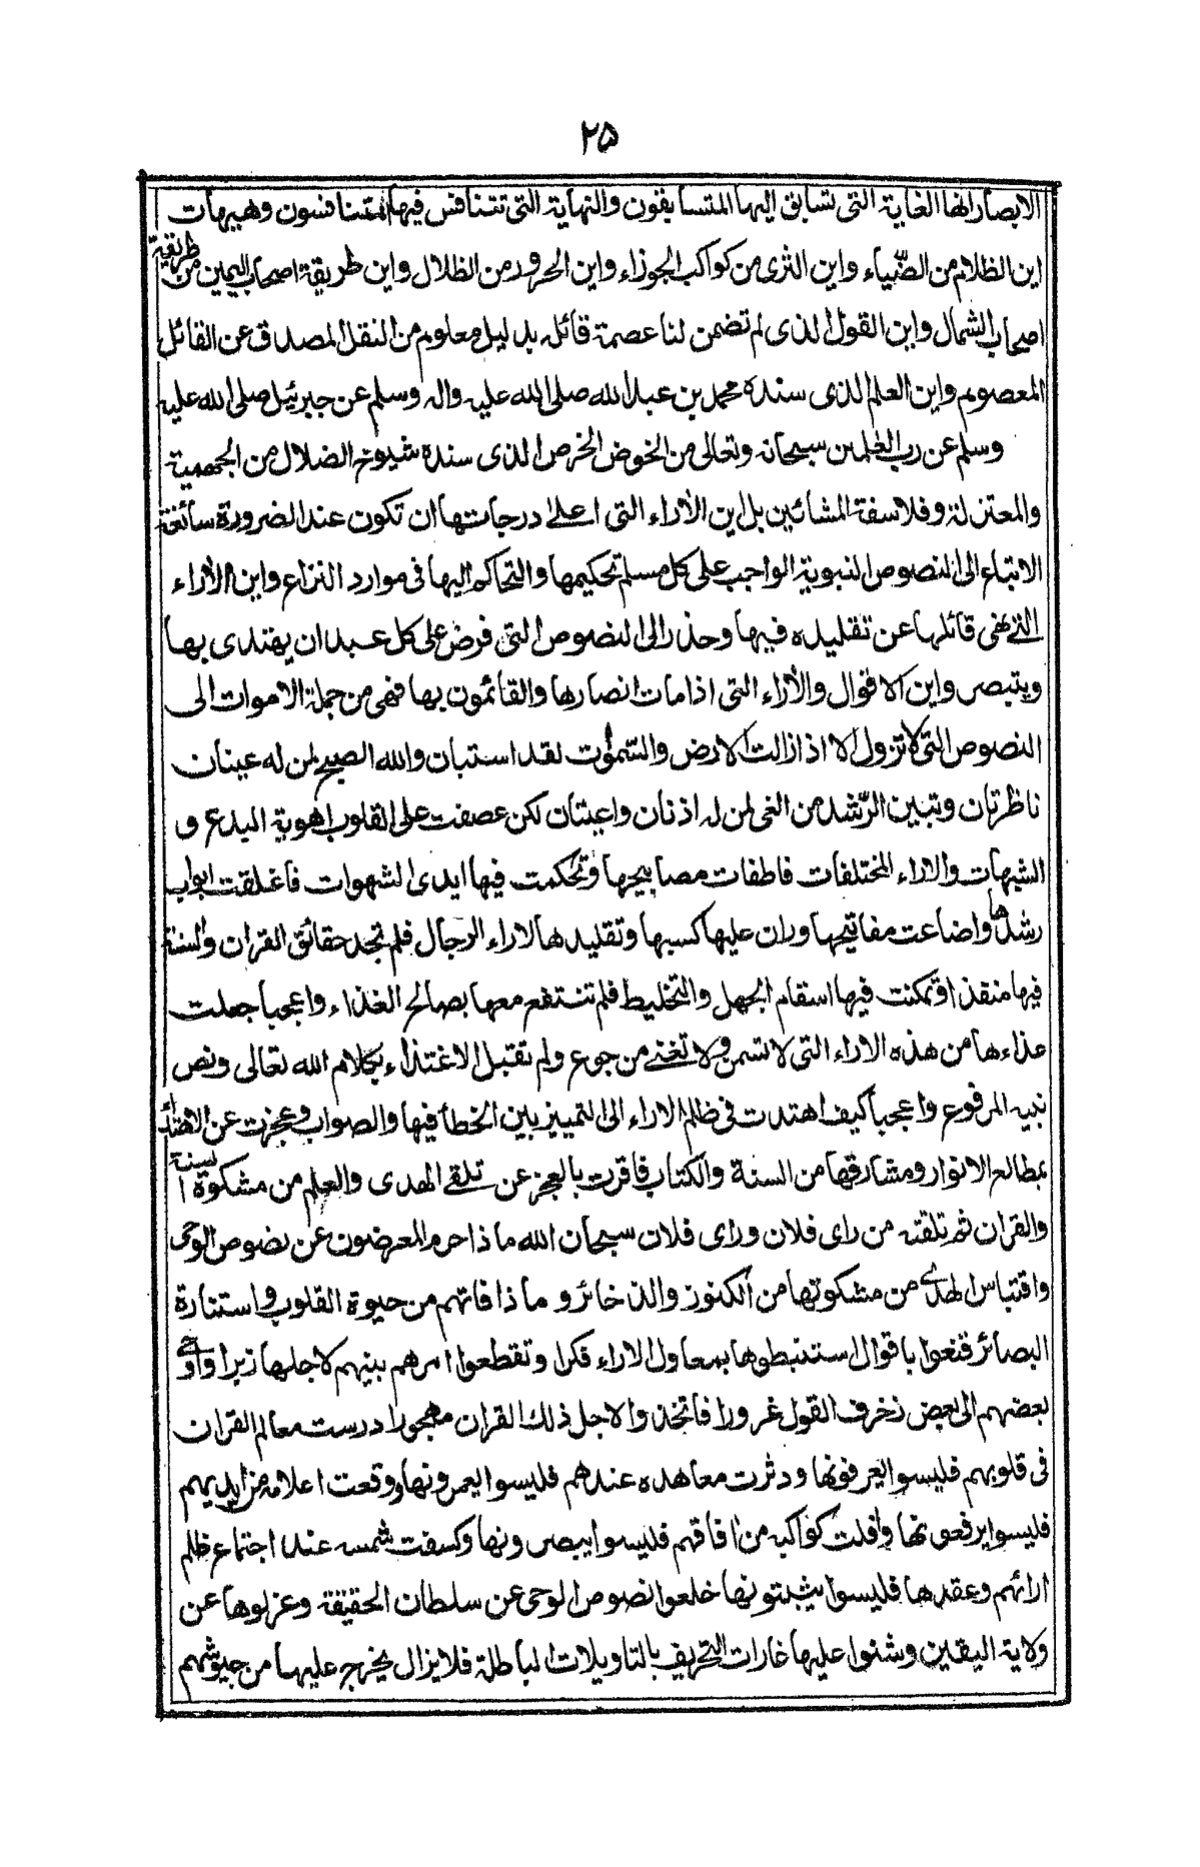 ٢٥
الابصار انها الغاية التى تسابق اليها المتسابقون والنهاية التى تتنافس فيها المتنافسون وهيهات
اين الظلام من الضّياء واين الثرى من كواكب الجوزاء واين الحرور من الظلال واين طريقة اصحاب اليمين من طريقة
اصحاب الشمال واين القول الذى لم تضمن لنا عصمة قائله بدليل معلوم من النقل المصدق عن القائل
المعصوم واين العلم الذى سنده محمد بن عبد الله صلى الله عليه واله وسلم عن جبرئيل صلى الله عليه
وسلم عن رب العلمين سبحانه وتعالى من الخوض الخرص الذى سنده شيوخ الضلال من الجهمية
والمعتزلة وفلاسفة المشائين بل اين الأراء التى اعلى درجاتها ان تكون عند الضرورة سائغة
الاتباع الى النصوص النبوية الواجب على كل مسلم تحكيمها والتحاكم اليها فى موارد النزاع واين الأراء
التى نهى قائلها عن تقليده فيها وحذر الى النصوص التى فرض على كل عبد ان يهتدى بها
ويتبصر واين الاقوال والأراء التى اذا مات انصارها والقائمون بها فهى من جملة الاموات الى
النصوص التى لا تزول الا اذا زالت الارض والسّموٰت لقد استبان والله الصبح لمن له عينان
ناظرتان وتبين الرّشد من الغى لمن له اذنان واعيتان لكن عصفت على القلوب اهوية البدع و
الشبهات والاراء المختلفات فاطفات مصابيحها وتحكمت فيها ايدى الشهوات فاغلقت ابواب
رشدها واضاعت مفاتيحها وران عليها كسبها وتقليدها لاراء الرجال فلم تجد حقائق القران والسنة
فيها منفذا وتمكنت فيها اسقام الجهل والتخليط فلم تنتفع معها بصالح الغذاء واعجبا جعلت
غذاءها من هذه الاراء التى لا تسمن ولا تغنى من جوع ولم تقبل الاغتذاء بكلام الله تعالى ونص
نبيه المرفوع واعجبا كيف اهتدت فى ظلم الاراء الى التمييز بين الخطأ فيها والصواب وعجزت عن الاهتداء
بمطالع الانوار ومشارقها من السنة والكتاب فاقرت بالعجز عن تلقى الهدى والعلم من مشكوة السنة
والقران ثم تلقته من راى فلان وراى فلان سبحان الله ماذا حرم المعرضون عن نصوص الوحى
واقتباس الهدى من مشكوتها من الكنوز والذخائر و ماذا فاتهم من حيوة القلوب واستنارة
البصائر قنعوا باقوال استنبطوها بمعاول الاراء فكرا وتقطعوا امرهم بينهم لاجلها زبرا واوحى
بعضهم الى بعض زخرف القول غرورا فاتخذوا لاجل ذلك القران مهجورا درست معالم القران
فى قلوبهم فليسوا يعرفونها ودثرت معاهده عندهم فليسوا يعمرونها ووقعت اعلامه من ايديهم
فليسوا يرفعونها وأفلت كواكبه من افاقهم فليسوا يبصرونها وكسفت شمسه عند اجتماع ظلم
ارائهم وعقدها فليسوا يثبتونها خلعوا نصوص الوحى عن سلطان الحقيقة وعزلوها عن
ولاية اليقين وشنوا عليها غارات التحريف بالتاويلات الباطلة فلا يزال يخرج عليها من جيوشهم